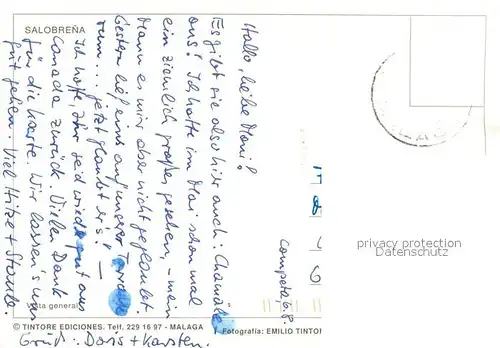 SALOBREÑA
Hallo, liebe Mani!
Es gibt sie also hier auch: Chamäle-
ons! Ich hatte im Mai schon mal
ein ziemlich großes gesehen, – mein
Mann es mir aber nicht geglaubt.
Gestern lief eins auf unserer Terrasse
rum... jetzt glaubt er's! —
Ich hoffe, Ihr seid wieder gut aus
Canada zurück. Vielen Dank
für die Karte. Wir lassen's uns
gut gehen. Viel Hitze + Staub.
Gruß: Doris + Karsten.
Competa, 6.9.
Vista general
© TINTORE EDICIONES. Telf. 229 16 97 - MALAGA
Fotografía: EMILIO TINTOR
privacy protection
Datenschutz